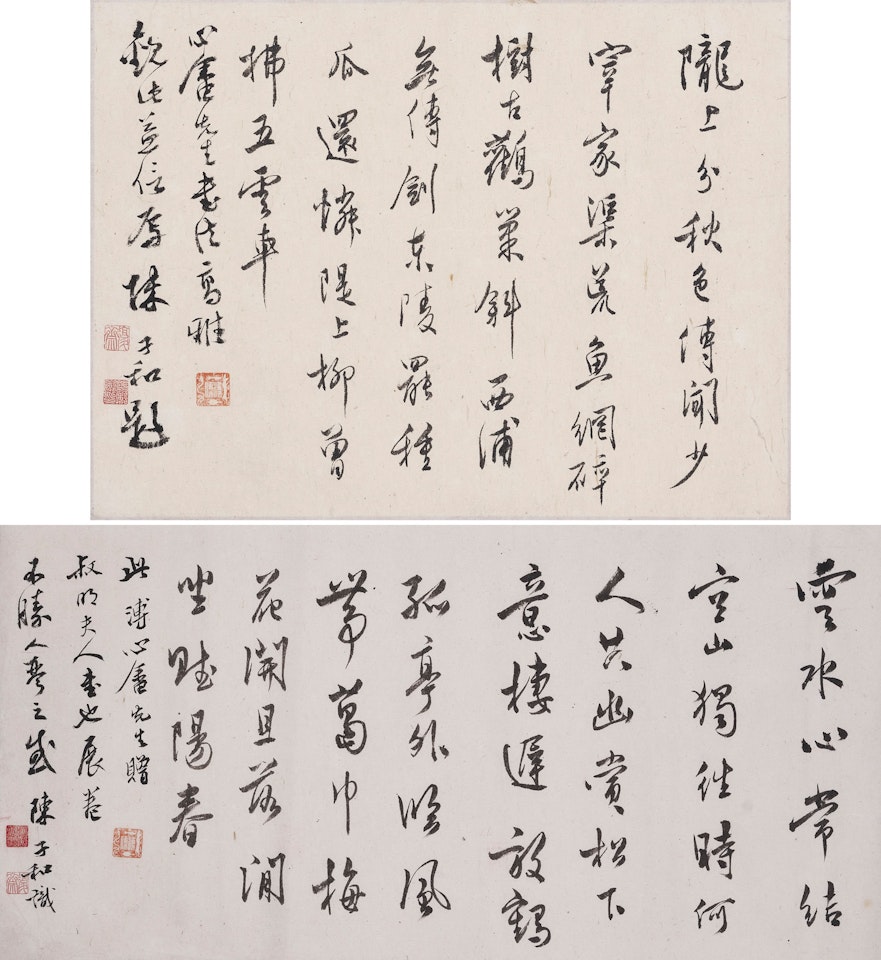 隴上分秋色傳聞少
宰家渠荒魚網碎
樹古鸛巢斜西浦
無傳劍東陵罷種
瓜還憐隄上柳曾
拂五雲車
心畬先生書法高雅
觀此益信焉 陳子和題
雲水心常結
空山獨往時何
人共幽賞松下
意棲遲放鶴
孤亭外吟風
帶葛巾梅
花開且落閒
坐賦陽春
此溥心畬先生贈
叔明夫人書也展卷
不勝人琴之感 陳子和識